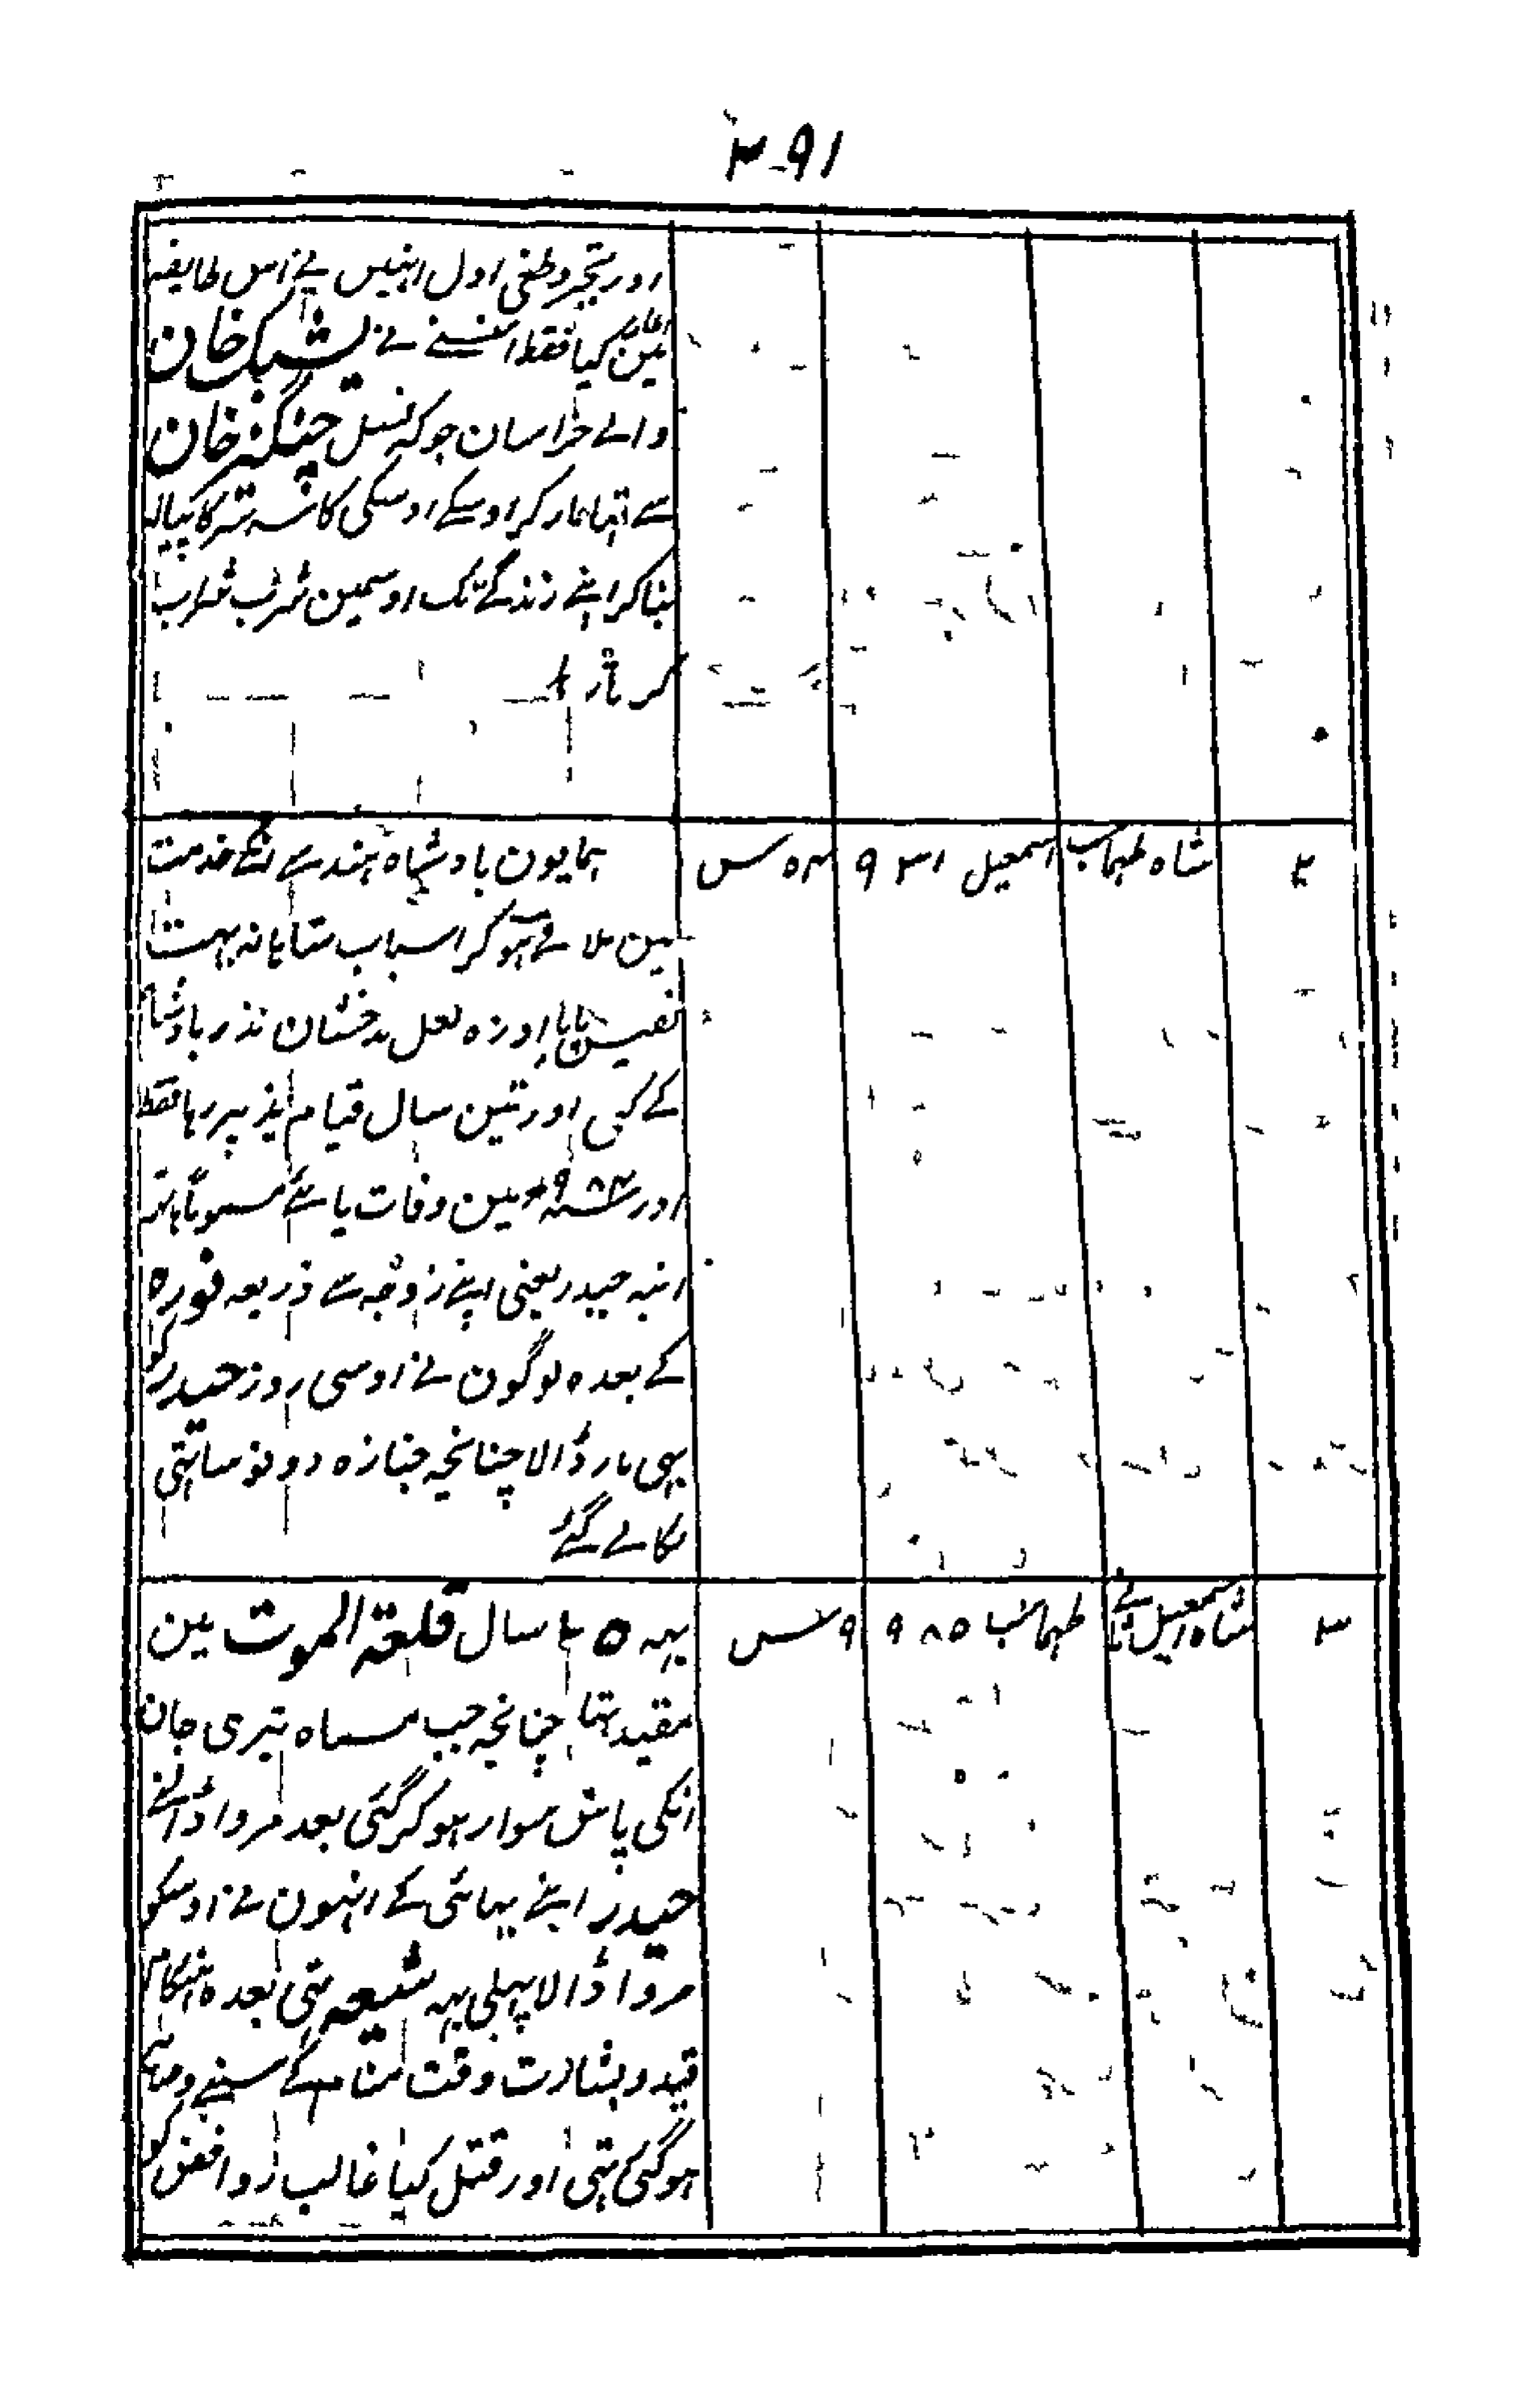 ۳۹۱
اور تجیر وطغی اول انہیں نے اس طایفہ
مین کیا فقط اسنے نے یشبک خان
والے خراسان جو کہ نسل چنگیز خان
سے تہا مار کر اوسکے اوسکی کاسہ سر کا پیالہ
بنا کر اپنے زندگے تک اوسمین شرب شراب
کر تا رہا
۲ شاہ طہماسب اسمعیل ۹۳۱ ۵۴ س
ہمایون بادشاہ ہند سے خدمت
مین ملاقے ہو کر اسباب شاہانہ بہت
نفیس پایا اور ہ لعل بدخشان نذر بادشاہ
کے کی اور تین سال قیام پذیر رہا فقط
اور سنہ ۹۸۴ مین وفات پائے مسموماً
حیدر یعنی اپنے زوجہ سے ذریعہ نورہ
کے بعدہ لوگون نے اوسی روز حیدر کو
بہی مار ڈالا چنانچہ جنازہ دونو ساتہی
نکالے گئے
۳ شاہ اسمعیل ثانے طہماسب ۹۸۵ ۹ س
یہہ ۲۵ سال قلعۃ الموت مین
مقید تہا چنانچہ جب مسماہ تیری جان
انکی پاس سوار ہو کر گئی بعد مروا ڈالنے
حیدر اپنے بہائی کے انہون نے اوسکو
مروا ڈالا پہلی یہہ شیعہ تہی بعدہ ہنگام
قید و بشارت وقت منام کے سنے
ہو گئی تہی اور قتل کیا غالب روافض کو